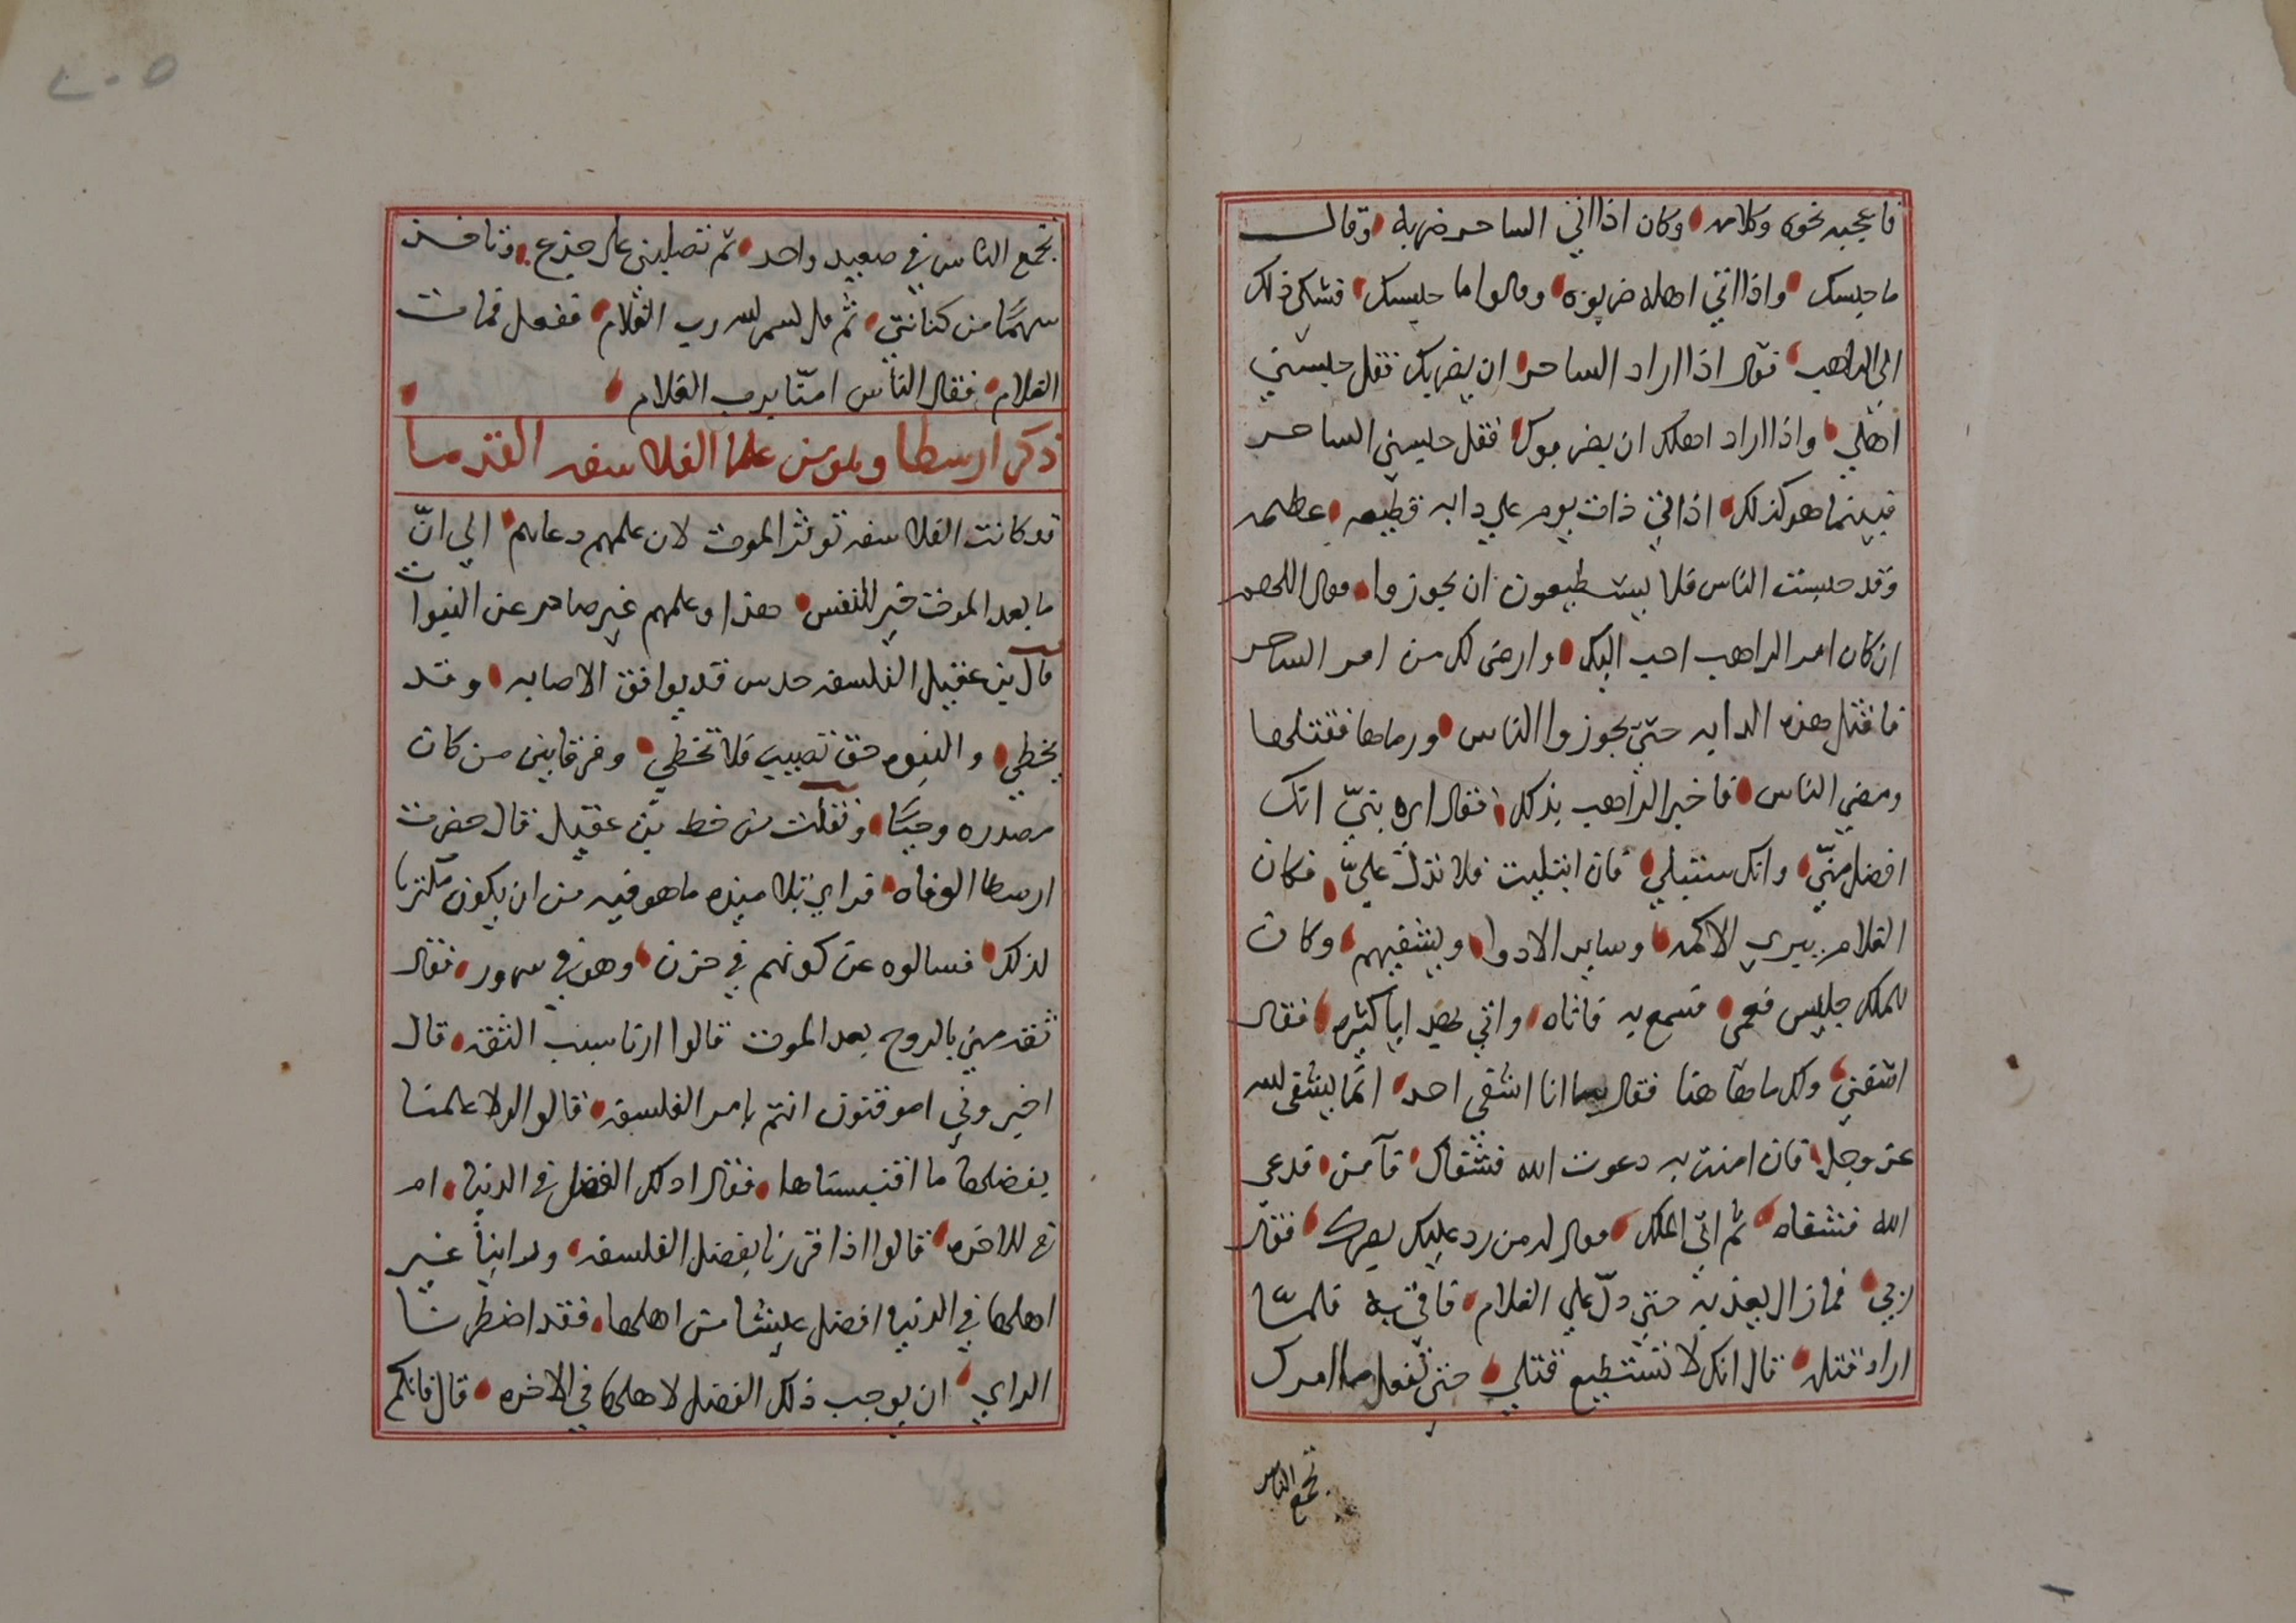 فاعجبه نحوه وكلامه وكان اذا اتي الساحر ضربه وقال
ما حبسك واذا اتي اهله ضربوه وقالوا ما حبسك فشكي ذلك
الي الراهب فقال اذا اراد الساحر ان يضربك فقل حبسني
اهلي واذا اراد اهلك ان يضربوك فقل حبسني الساحر
فبينما هو كذلك اذ اتي ذات يوم علي دابه فظيعه عظيمه
وقد حبست الناس فلا يستطيعون ان يجوزوا وقال اللهم
ان كان امر الراهب احب اليك وارضى لك من امر الساحر
فاقتل هذه الدابه حتي يجوزوا الناس ورماها فقتلها
ومضي الناس فاخبر الراهب بذلك فقال اي بنيّ انك
افضل منّي وانك ستبتلي فان ابتليت فلا تدلّ عليّ فكان
الغلام يبري الاكمه وساير الادوا ويشفيهم وكان
للملك جليس فعمى فسمع به فاتاه واتي بهدايا كثيره فقال
اشفني ولك ما هاهنا فقال ما انا اشفي احد انما يشفي الله
عز وجل فان امنت به دعوت الله فشفاك فآمن فدعى
الله فشفاه ثم اتي الملك فقال له من رد عليك بصرك فقال
ربي فما زال يعذبه حتي دلّ علي الغلام فاتي به فلمّا
اراد قتله قال انك لا تستطيع قتلي حتي تفعل ما امرك
تجمع الناس
تجمع الناس في صعيد واحد ثم تصلبني على جذع وتاخذ
سهمًا من كنانتي ثم قل بسم الله رب الغلام ففعل فمات
الغلام فقال الناس امنّا برب الغلام
ذكر ارسطا وبلوس علما الفلاسفه القدما
قد كانت الفلاسفه توثر الموت لان علمهم دعاهم الي انّ
ما بعد الموت خير للنفس هذا وعلمهم غير صادر عن النبوات
قال بن عقيل الفلسفه حدس قد يوافق الاصابه وقد
يخطي والنبوه حق تصيب فلا تخطي وفرقا بين من كان
مصدره وحيًا ونقلت من خط بن عقيل قال حضرت
ارسطا الوفاه فراي تلاميذه ما هو فيه من ان يكون مكترثا
لذلك فسالوه عن كونهم في حزن وهو في سرور فقال
ثقه مني بالروح بعد الموت قالوا ارنا سبب الثقه قال
اخبروني اموقنون انتم بامر الفلسفه قالوا لولا علمنا
بفضلها ما اقتبسناها فقال اذلك الفضل في الدنيا ام
في الاخره قالوا اذا اقررنا بفضل الفلسفه وراينا غير
اهلها في الدنيا افضل عيشا من اهلها فقد اضطرنا
الراي ان يوجب ذلك الفضل لاهلها في الاخره قال فانكم